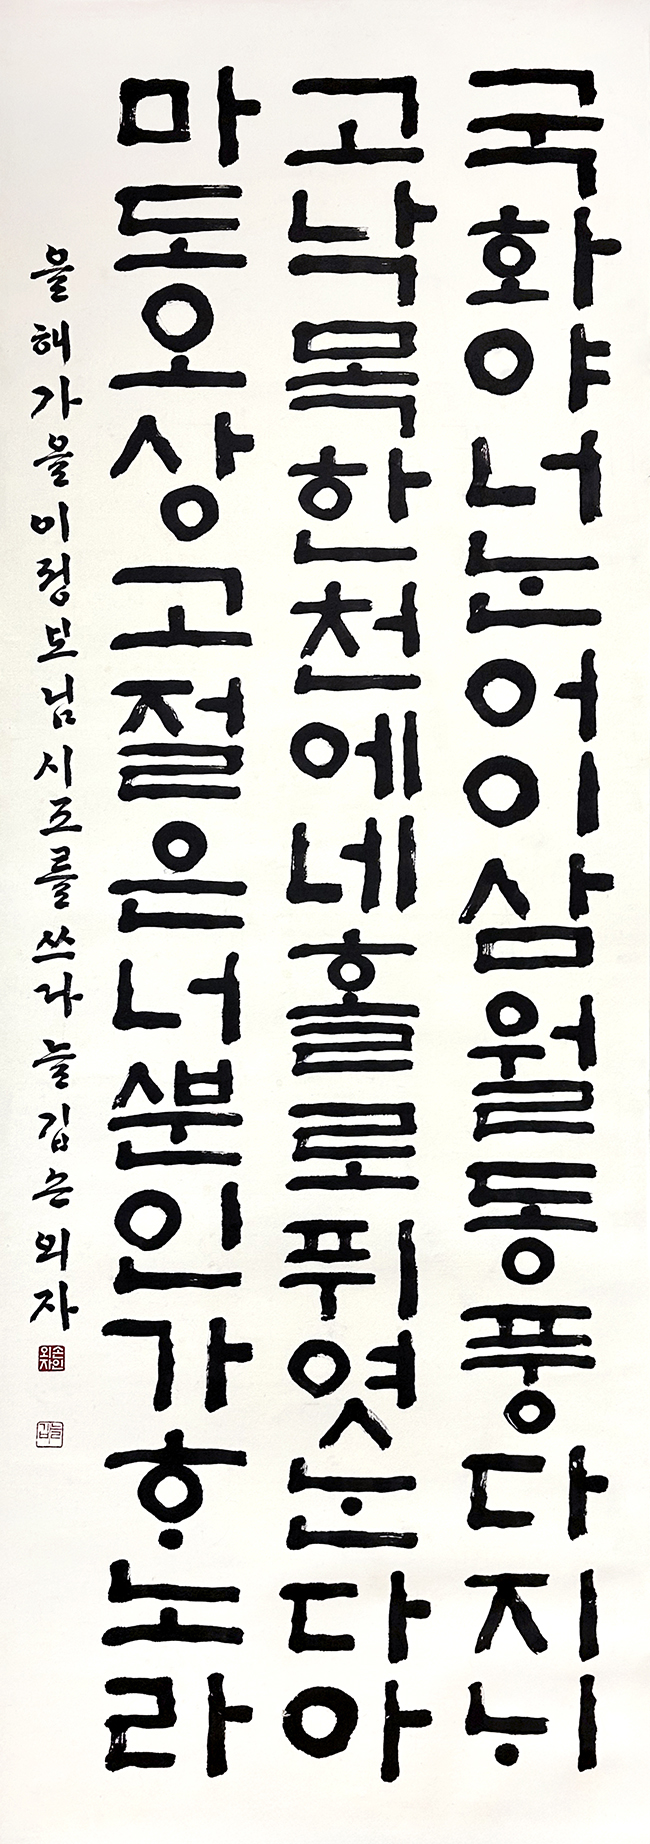 국화야너ᄂᆞᆫ어이삼월동풍다지ᄂᆡ
고낙목한천에네홀로퓌엿ᄂᆞᆫ다아
마도오상고절은너ᄲᅮᆫ인가ᄒᆞ노라
올해가을이정보님시조를쓰다늘깁손외자